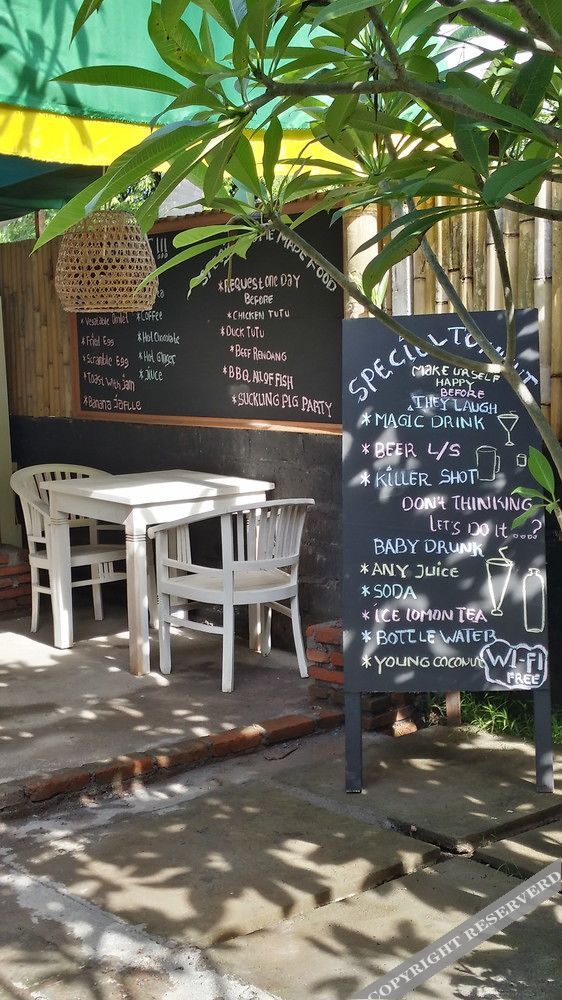 !!!
*Vegetable Omlet
*Fried Egg
*Scramble Egg
*Toast With Jam
*Banana Jaffle
*Coffee
*Hot Chocolate
*Hot Ginger
*Juice
HOME MADE FOOD
*REQUEST ONE DAY
BEFORE
*CHICKEN TUTU
*DUCK TUTU
*BEEF RENDANG
*BBQ ALL OF FISH
*SUCKLING PIG PARTY
SPECIAL
MAKE URSELF
HAPPY
BEFORE
THEY LAUGH
*MAGIC DRINK
*BEER L/S
*KILLER SHOT
DON'T THINKING
LET'S DO IT....?
BABY DRUNK
*ANY JUICE
*SODA
*ICE LOMON TEA
*BOTTLE WATER
*YOUNG COCONUT
WI-FI
FREE
COPYRIGHT RESERVED